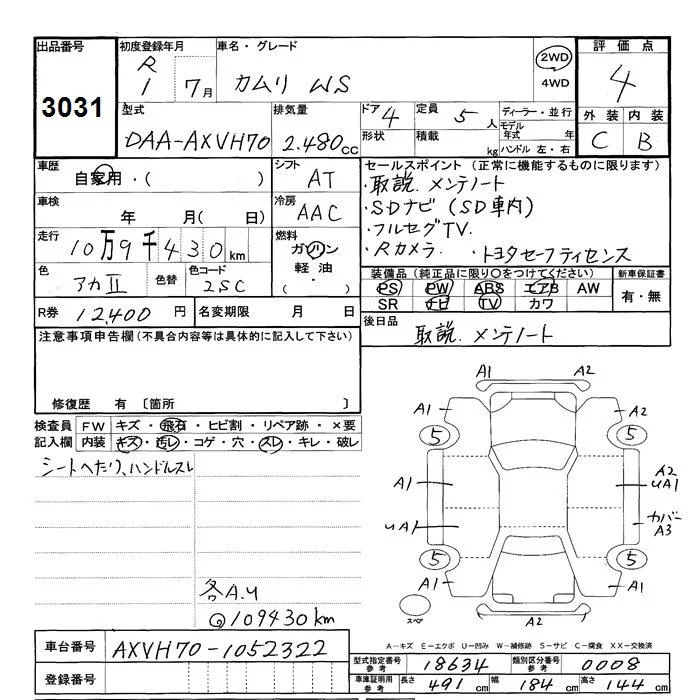 出品番号
3031
初度登録年月
R
1 7月
車名・グレード
カムリ WS
2WD
4WD
評価点
4
外装 内装
C B
型式
DAA-AXVH70
排気量
2.480cc
ドア 4
形状
定員 5人
積載 kg
ディーラー・並行
モデル年式 年
ハンドル 左・右
車歴
自家用・( )
シフト
AT
車検
年 月( )日
冷房
AAC
走行
10万9千430km
燃料
ガソリン
軽油・
( )
色
アカⅡ
色替
色コード
2SC
R券 12,400円
名変期限 月 日
セールスポイント(正常に機能するものに限ります)
・取説、メンテノート
・SDナビ(SD車内)
・フルセグTV.
・Rカメラ ・トヨタセーフティセンス
装備品(純正品に限り○をつけてください)
PS PW ABS エアB AW
SR ナビ TV カワ
新車保証書
有・無
後日品
取説、メンテノート
注意事項申告欄(不具合内容等は具体的に記入して下さい)
修復歴 有〔箇所 〕
検査員記入欄
FW キズ・飛石・ヒビ割・リペア跡・×要
内装 キズ・汚レ・コゲ・穴・スレ・キレ・破レ
シートヘたり、ハンドルスレ
各A.U
@109430km
A1 A2
A1 A2
5 5
A1 A2
UA1
UA1 カバーA3
5 5
A1 A1
スペア
A2
A-キズ E-エクボ U-凹み W-補修跡 S-サビ C-腐食 XX-交換済
車台番号
AXVH70-1052322
登録番号
型式指定番号参考 18634
類別区分番号参考 0008
車庫証明用参考 長さ 491cm 幅 184cm 高さ 144cm